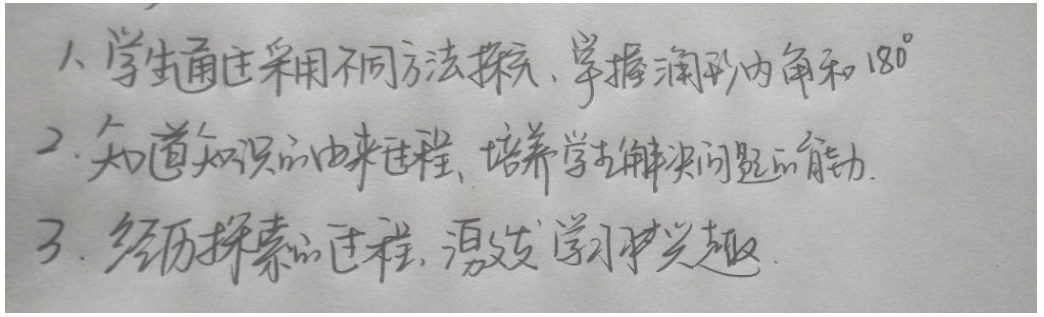 1、学生通过采用不同方法探究、掌握三角形内角和180°
2.知道知识的由来过程、培养学生解决问题的能力.
3.经历探索的过程,激发学习兴趣.